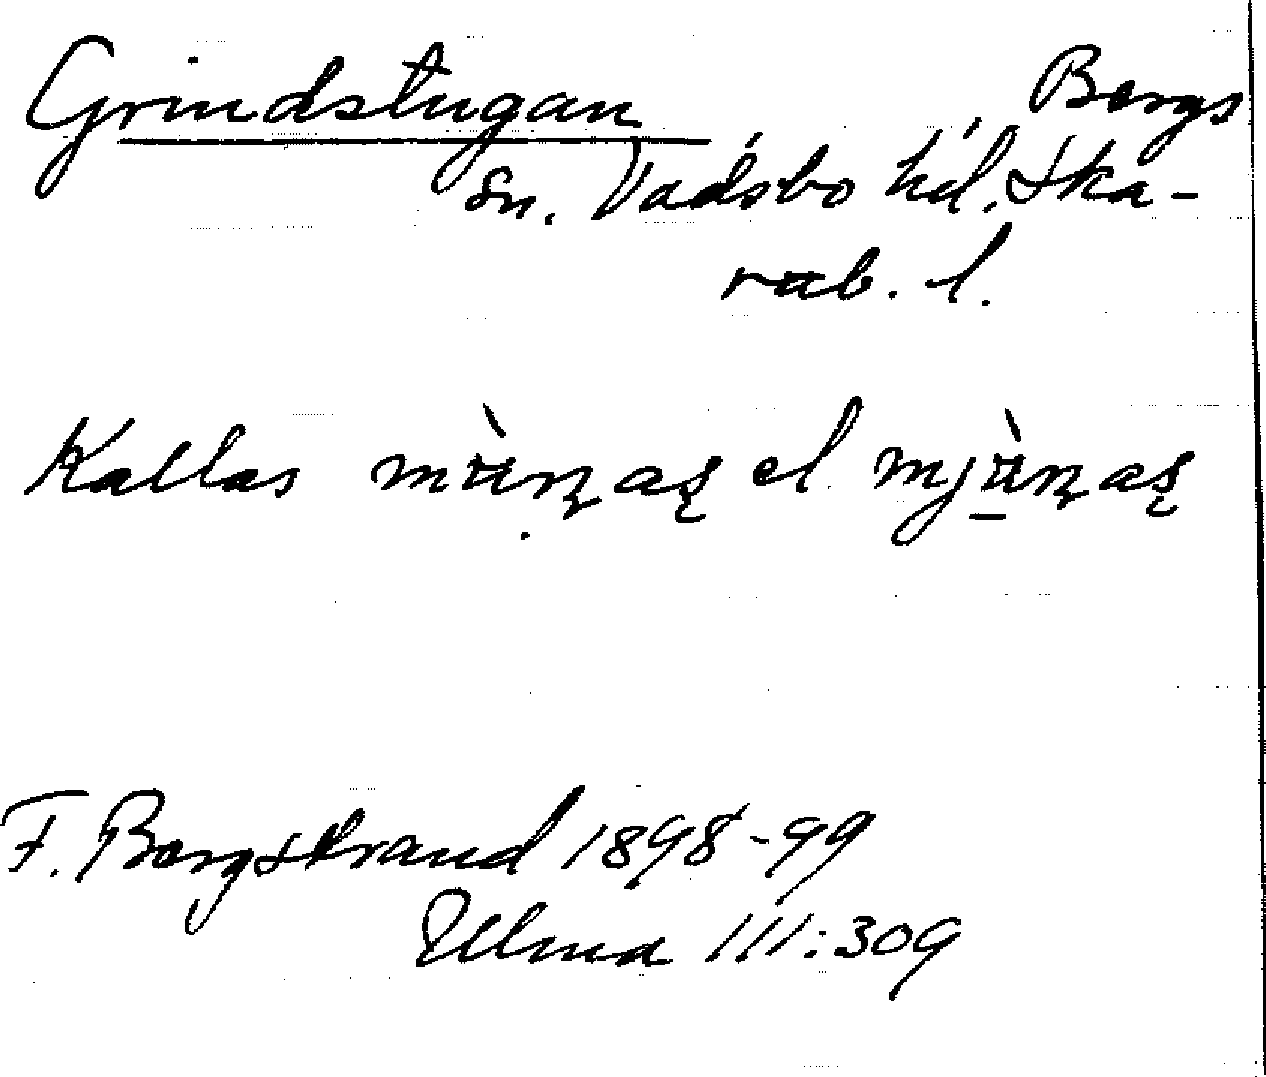 Grindstugan Bergs
sn. Vadsbo hd. Ska-
rab. l.
Kallas el.
F. Bergstrand 1898-99
Ulma 111:309